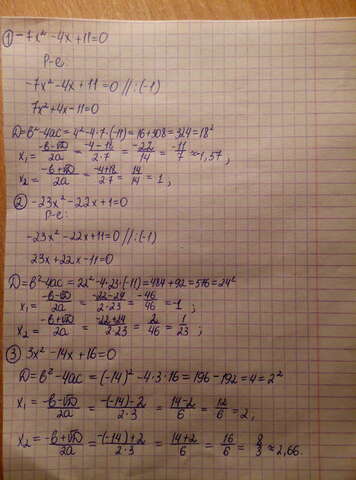 1) -7x² -4x +11=0
Р-е:
-7x² -4x +11 = 0 //:(-1)
7x²+4x-11=0
D=b²-4ac = 4²-4·7·(-11)=16+308=324=18²
x₁ = (-b-√D)/2a = (-4-18)/2·7 = -22/14 = -11/7 ≈ -1,57;
x₂ = (-b+√D)/2a = (-4+18)/2·7 = 14/14 = 1;
2) -23x² -22x+1=0
Р-е:
-23x² -22x+11=0 //:(-1)
23x+22x-11=0
D=b²-4ac=22²-4·23·(-11)=484+92=576=24²
x₁ = (-b-√D)/2a = (-22-24)/2·23 = -46/46 = -1;
x₂ = (-b+√D)/2a = (-22+24)/2·23 = 2/46 = 1/23;
3) 3x² -14x +16=0
D=b²-4ac=(-14)² -4·3·16=196-192=4=2²
x₁ = (-b-√D)/2a = (-(-14)-2)/2·3 = (14-2)/6 = 12/6 = 2;
x₂ = (-b+√D)/2a = (-(-14)+2)/2·3 = (14+2)/6 = 16/6 = 8/3 ≈ 2,66.